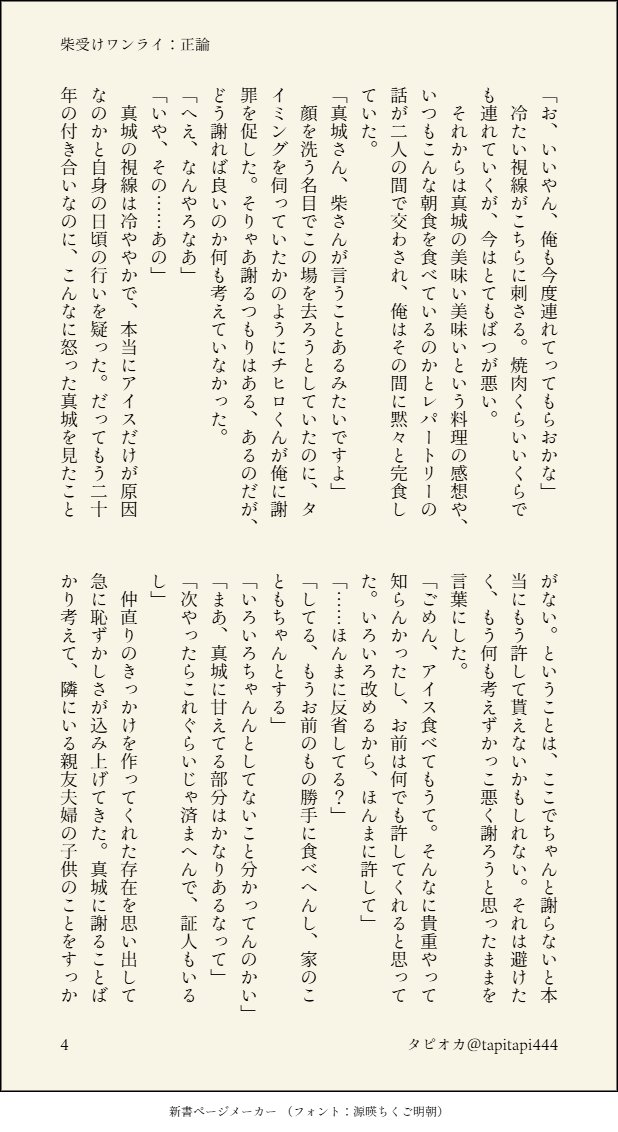 柴受けワンライ：正論
「お、いいやん、俺も今度連れてってもらおかな」
　冷たい視線がこちらに刺さる。焼肉くらいいくらで
も連れていくが、今はとてもばつが悪い。
　それからは真城の美味い美味いという料理の感想や、
いつもこんな朝食を食べているのかとレパートリーの
話が二人の間で交わされ、俺はその間に黙々と完食し
ていた。
「真城さん、柴さんが言うことあるみたいですよ」
　顔を洗う名目でこの場を去ろうとしていたのに、タ
イミングを伺っていたかのようにチヒロくんが俺に謝
罪を促した。そりゃあ謝るつもりはある、あるのだが、
どう謝れば良いのか何も考えていなかった。
「へえ、なんやろなあ」
「いや、その……あの」
　真城の視線は冷ややかで、本当にアイスだけが原因
なのかと自身の日頃の行いを疑った。だってもう二十
年の付き合いなのに、こんなに怒った真城を見たこと
がない。ということは、ここでちゃんと謝らないと本
当にもう許して貰えないかもしれない。それは避けた
く、もう何も考えずかっこ悪く謝ろうと思ったままを
言葉にした。
「ごめん、アイス食べてもうて。そんなに貴重やって
知らんかったし、お前は何でも許してくれると思って
た。いろいろ改めるから、ほんまに許して」
「……ほんまに反省してる？」
「してる、もうお前のもの勝手に食べへんし、家のこ
ともちゃんとする」
「いろいろちゃんんとしてないこと分かってんのかい」
「まあ、真城に甘えてる部分はかなりあるなって」
「次やったらこれぐらいじゃ済まへんで、証人もいる
し」
　仲直りのきっかけを作ってくれた存在を思い出して
急に恥ずかしさが込み上げてきた。真城に謝ることば
かり考えて、隣にいる親友夫婦の子供のことをすっか
4
タピオカ@tapitapi444
新書ページメーカー （フォント：源暎ちくご明朝）